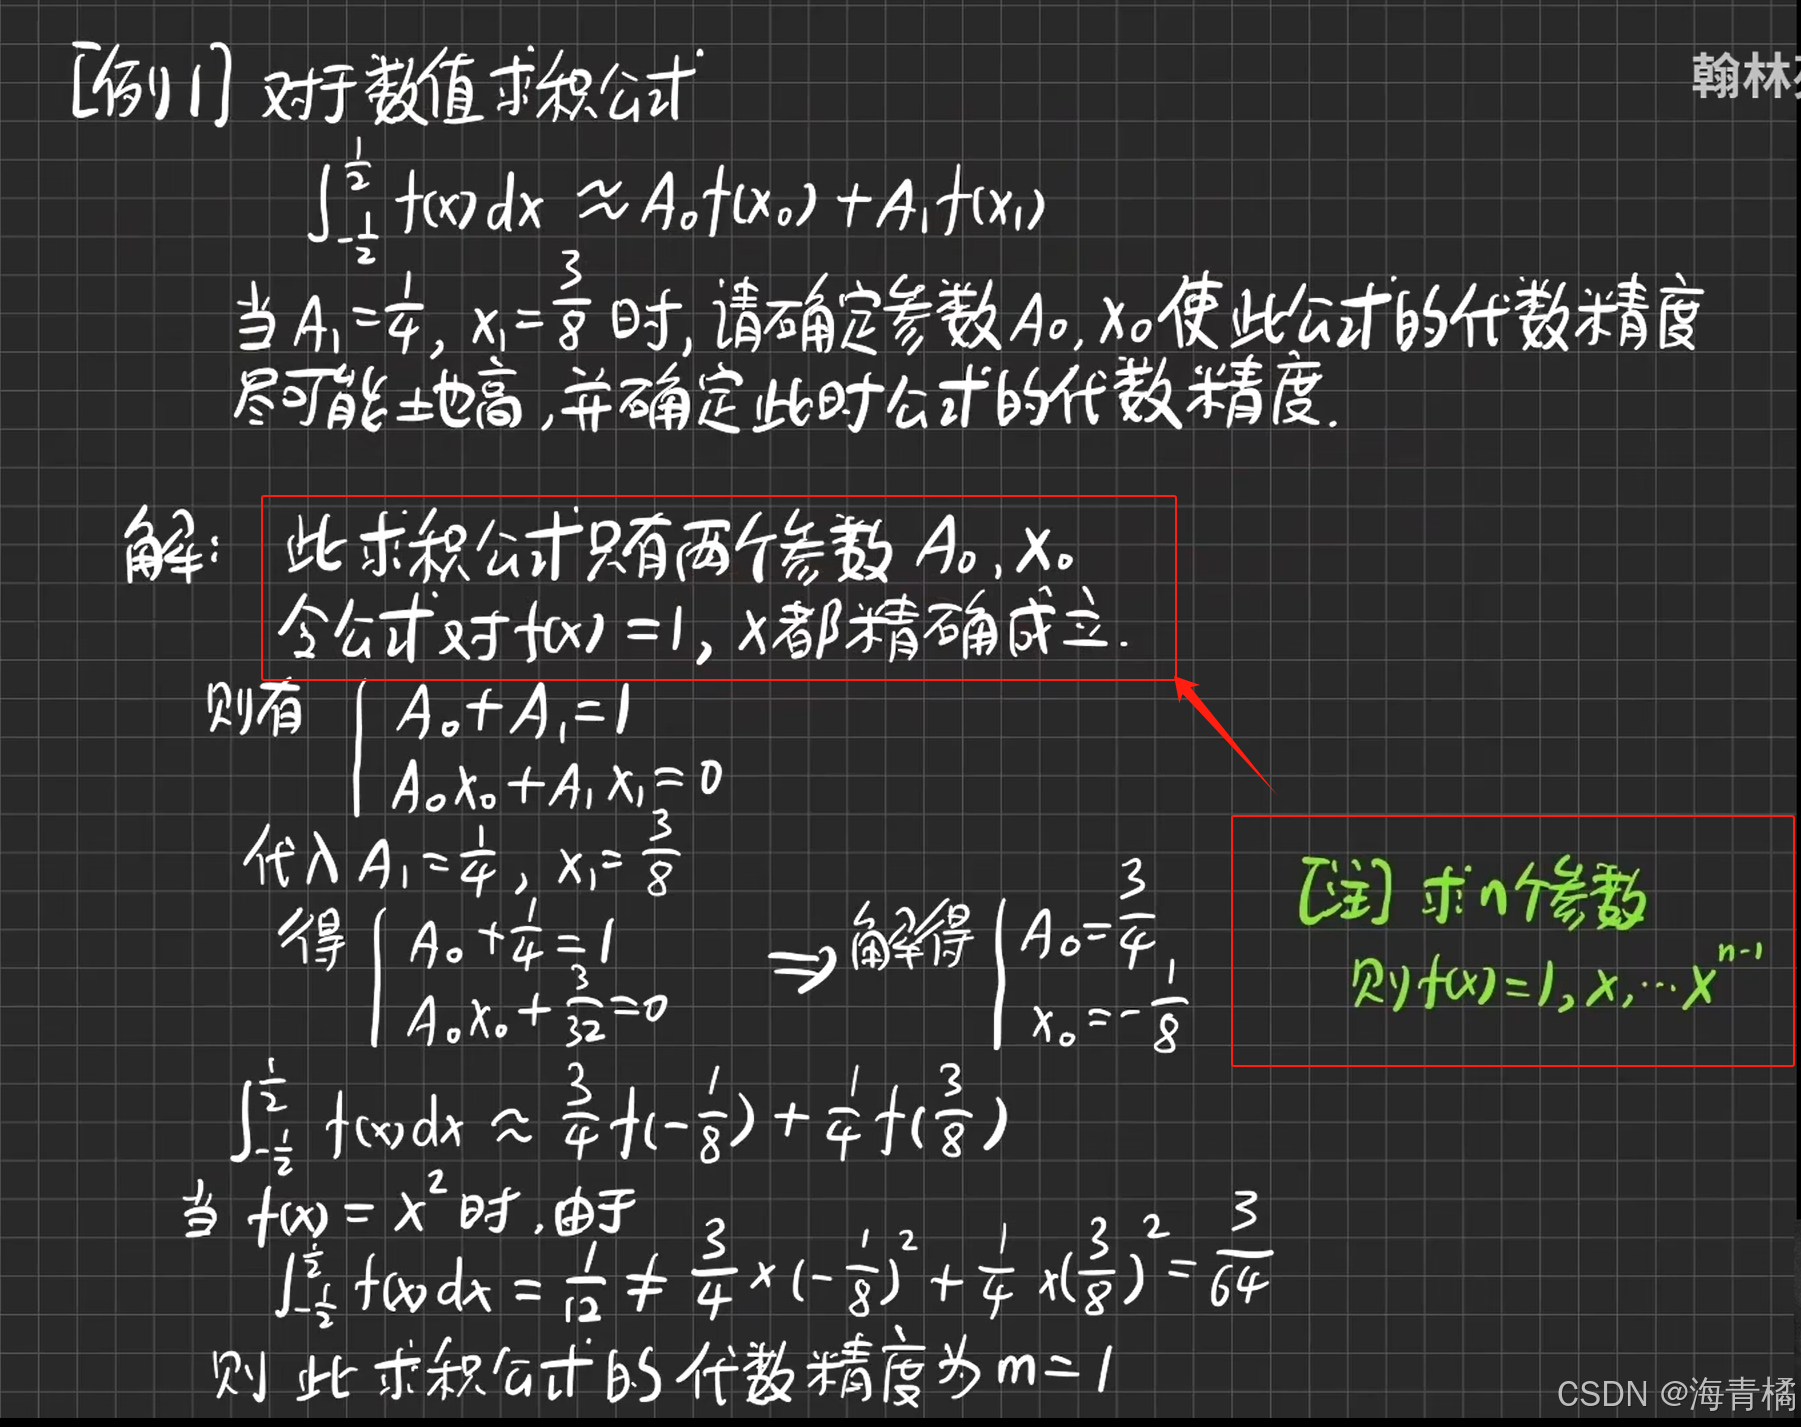 [例1] 对于数值求积公式
翰林
∫_{-1/2}^{1/2} f(x)dx ≈ A₀f(x₀)+A₁f(x₁)
当A₁=1/4, x₁=3/8时,请确定参数A₀,x₀使此公式的代数精度
尽可能地高,并确定此时公式的代数精度.
解: 此求积公式只有两个参数 A₀,x₀
令公式对f(x)=1, x都精确成立.
则有 { A₀+A₁=1
A₀x₀+A₁x₁=0
代入A₁=1/4, x₁=3/8
得 { A₀+1/4=1
A₀x₀+3/32=0
⇒解得 { A₀=3/4
x₀=-1/8
[注] 求n个参数
则f(x)=1,x,…x^{n-1}
∫_{-1/2}^{1/2} f(x)dx ≈ 3/4 f(-1/8)+1/4 f(3/8)
当 f(x)=x² 时,由于
∫_{-1/2}^{1/2} f(x)dx = 1/12 ≠ 3/4×(-1/8)²+1/4×(3/8)²=3/64
则此求积公式的代数精度为m=1
CSDN @海青橘